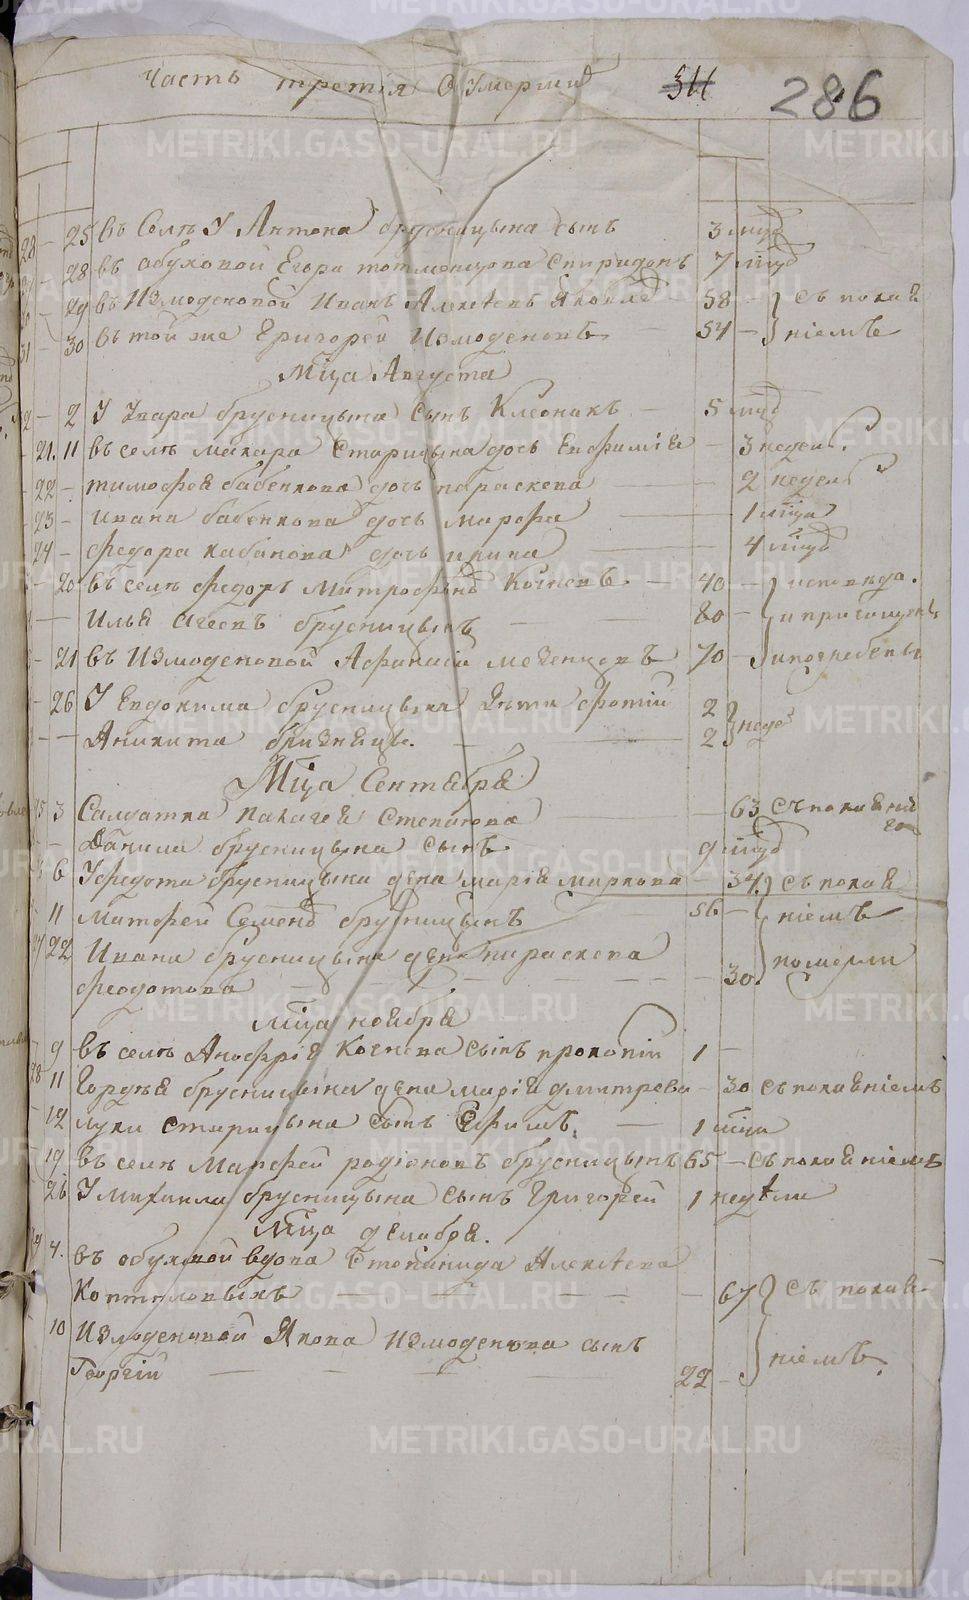 Часть третїя О Умершихъ 311 286
28 - 25 въ Селѣ У Антона брусницына сынъ 3 мцъ
- 28 въ обуховой Егора тотменцова Спиридонъ 7 мцъ
- 29 въ Измоденовой Иванъ Алексѣевъ - 58 - съ покая
31 - 30 въ той же Григорей Измоденовъ - 54 - нїемъ
Мца Августа
- 2 У Уара брусницына Сынъ Клеоникъ - 5 мцъ
21. 11 въ селѣ макара Старицына дочь Евфимїя - 3 недел.
22 - тимофея бабенкова дочь параскева 2 недел
23 - ивана бабенкова дочь марфа 1 мца
24 - федора кабакова дочь ирина 4 мцъ
- 20 въ селѣ федоръ Митрофанов Кочневъ - 40 - исповѣда.
- Илья Агеевъ брусницынъ 80 - и прıчащены
- 21 въ Измоденовой Афанасїй мезенцовъ 70 - и погребены
- 26 У Евдокима брусницына дѣти фотїй 2
- Аникита близнецы. 2 недел
Мца Сентября
3 Салдатка Палагея Степанова 63 съ покаянїй
- Данила брусницына сынъ 9 мцъ
6 У федота брусницына жена марїя маркова 34 съ покая
11 Матфей Семенов брусницынъ 56 - нїемъ
22 Ивана брусницына жена параскева
феодотова 30. померли
мца ноября
9 въ селѣ Анофрїя Кочнева сынъ прокопїй 1 -
28 11 Гордѣя брусницына жена марїя дмитрева - 30 съ покаянїемъ
12 луки старицына сынъ Ефимъ. - 1 мца
19 въ селѣ Матфей родїоновъ брусницынъ 65 - съ покаянїемъ
26 У михаила брусницына сынъ Григорей 1 недѣли
Мца декабря.
4. въ обуховой вдова Степанида Алексѣева
Коптяловыхъ - 67 съ покая
10 Измоденовой Якова измоденова сынъ
Георгїй 22 - нїемъ.
METRIKI.GASO-URAL.RU